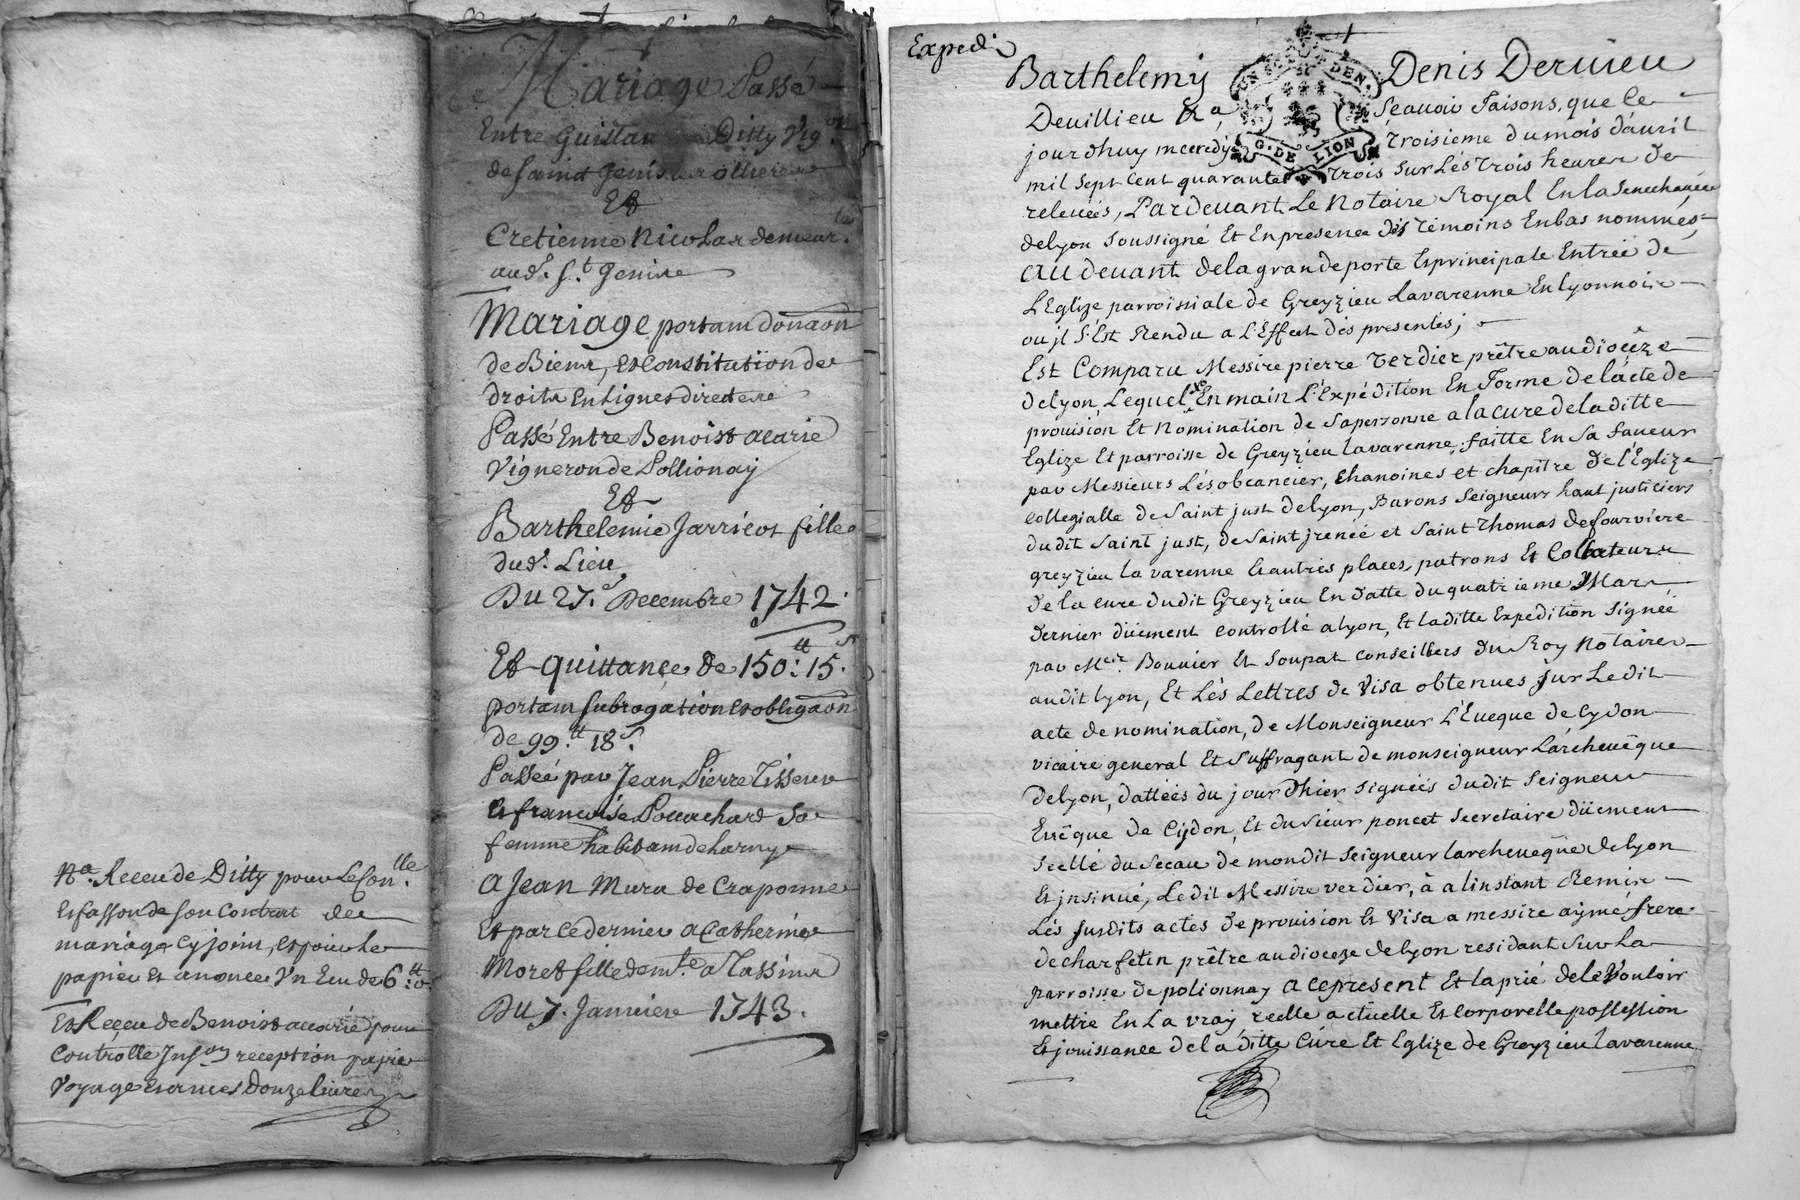 Nª. Receu de Ditty pour le Con.lle
et fasson de son Contrat de
mariage cy joint, et pour le
papier et anonces Un Ecu de 6.tt
Et Receu de Benoist acarie pour
Controlle Ins.on reception papier
Voyage et ances Douze livres
Mariage Passé
Entre Guistan Ditty Vig.on
de saint Genis les ollieres
Et
Cretienne Nicolas demeur.te
aud. S.t Genis
Mariage portant donaon
de Biens, et Constitution de
droits En Lignes directes
Passé Entre Benoist acarie
Vigneron de Pollionay
Et
Barthelemie Jarricot fille
dud. Lieu
Du 27.e Decembre 1742.
Et quittance de 150.tt 15.s
portant subrogation et obligaon
de 99.tt 18.s
Passée par Jean Pierre Tisseur
et françoise Poucachard Sa
femme habitant de harny
A Jean Mura de Craponne
Et par ce dernier a Catherine
Moret fille dem.te a Tassins
Du 7. Janvier 1743.
Exped.
Barthelemy Denis Dervieu
GEN DEN.
G. DE LION
Devillieu Sca Seavoir faisons, que Ce
jourdhuy mecredy troisieme du mois d'avril
mil sept Cent quarante trois sur Les trois heures de
relevées, Pardevant Le Notaire Royal En la Senechaucée
de lyon Soussigné Et En presence des Témoins En bas nommés,
au devant de la grande porte Et principale Entrée de
L'Eglize parroissiale de Greyzieu Lavarenne En lyonnois
ou jl S'Est Rendu a L'Effect des presentes;
Est Comparu Messire pierre Verdier prêtre au diocêze
de lyon, Lequel a En main L'Expédition En forme de lácte de
provision Et Nomination de Sa personne a la cure de la ditte
Eglize Et parroisse de Greyzieu Lavarenne, faitte En Sa faveur
par Messieurs Les obeancier, Chanoines et chapître de l'Eglize
Collegialle de Saint just de lyon, Barons Seigneurs haut justiciers
du dit Saint just, de Saint jrenée et Saint Thomas de fourviere
greyzieu la varenne Et autres places, patrons Et Collateurs
de la cure dudit Greyzieu En datte du quatrieme Mars
dernier düement controllé a lyon, Et la ditte Expedition signée
par M.es Bouvier Et Soupat Conseillers du Roy Notaires
au dit lyon, Et Les Lettres de Visa obtenues sur Le dit
acte de nomination, de Monseigneur L'Eveque de Cydon
vicaire general Et Suffragant de monseigneur Lárchevêque
de lyon, dattées du jour d'hier signées dudit Seigneur
Evêque de Cijdon, Et du Sieur poncet Secretaire düement
Scellé du Sceau de mondit Seigneur larchevêque de lyon
Et jnsinué, Ledit Messire verdier, à a linstant Remis
Les Susdits actes de provision Et Visa a messire aÿmé frere
de charfetin prêtre au dioceze de lyon residant Sur La
parroisse de polionnay a ce present Et la prié de le Vouloir
mettre En La vray, reelle actuelle Et Corporelle possession
Et jouissance de la ditte Cure Et Eglize de Greyzieu lavarenne